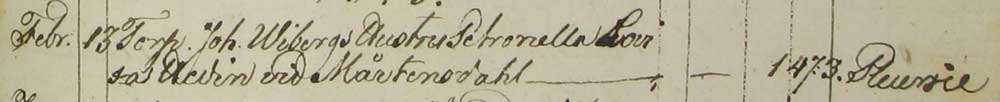 Febr. 13 Torp. Joh. Wibergs Hustru Petronella Lovi
sas Hedin vid Mårtensdahl — , — 1 47. 3. Pleuresie